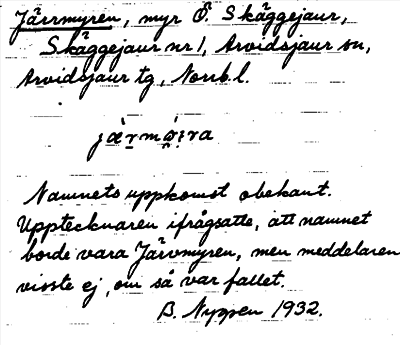 Järrmyren, myr Ö. Skäggejaur,
Skäggejaur nr 1, Arvidsjaur sn,
Arvidsjaur tg, Norrb. l.
Namnets uppkomst obekant.
Upptecknaren ifrågsatte, att namnet
borde vara Järvmyren, men meddelaren
visste ej, om så var fallet.
B. Nyman 1932.